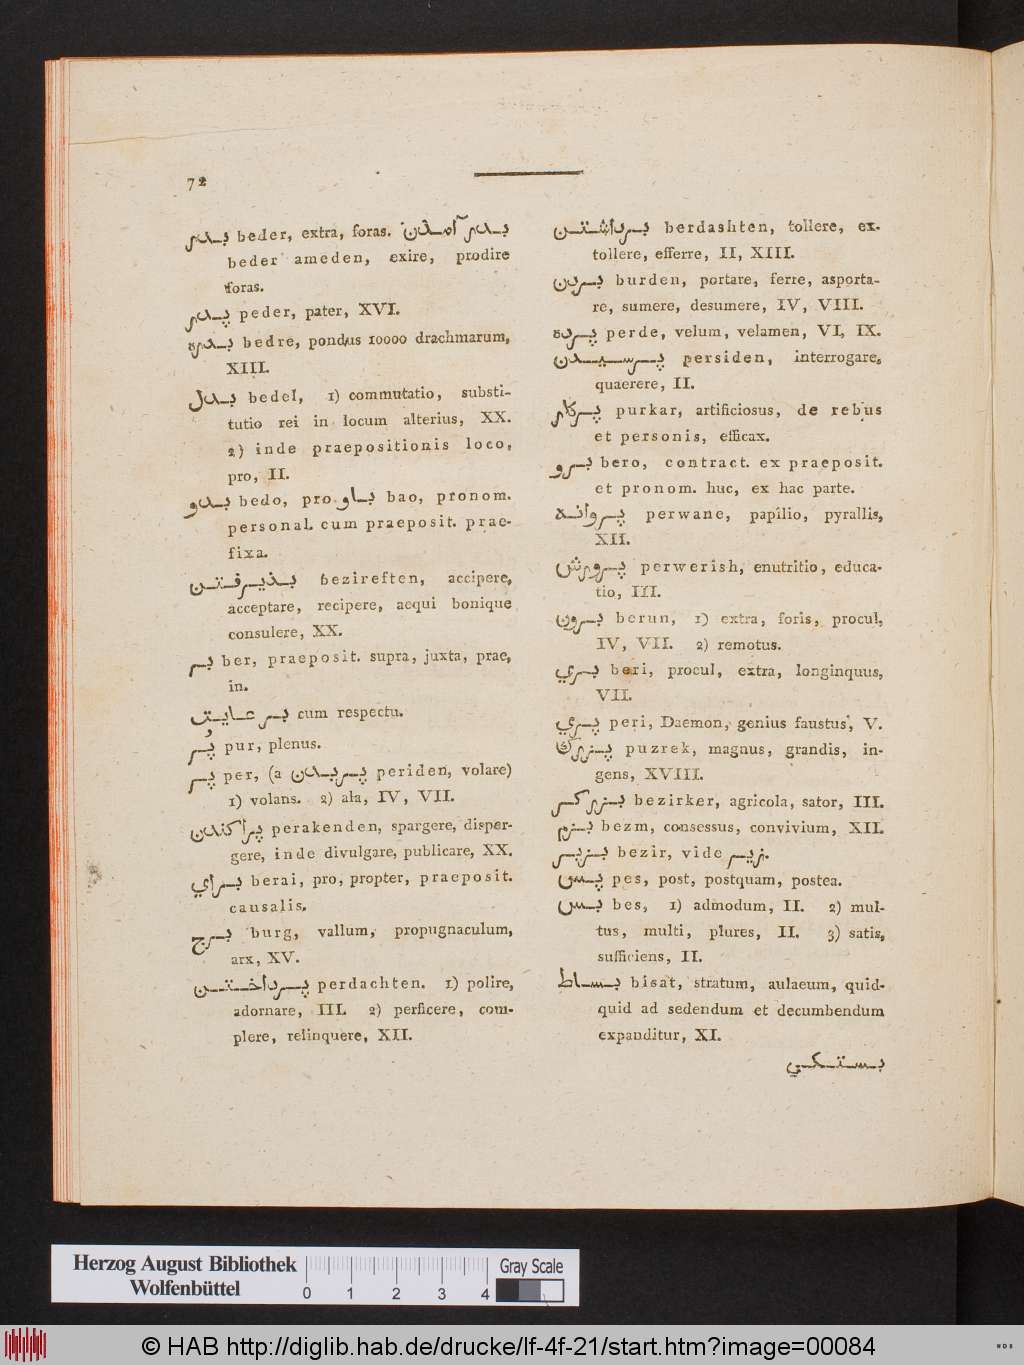 72
بدر beder, extra, foras. بدر آمدن
beder ameden, exire, prodire
foras.
پدر peder, pater, XVI.
بدره bedre, pondus 10000 drachmarum,
XIII.
بدل bedel, 1) commutatio, substi-
tutio rei in locum alterius, XX.
2) inde praepositionis loco,
pro, II.
بدو bedo, pro باو bao, pronom.
personal. cum praeposit. prae-
fixa.
بذيرفتن bezireften, accipere,
acceptare, recipere, aequi bonique
consulere, XX.
بر ber, praeposit. supra, juxta, prae,
in.
بر عايت cum respectu.
پُر pur, plenus.
پر per, (a پريدن periden, volare)
1) volans. 2) ala, IV, VII.
پراكندن perakenden, spargere, disper-
gere, inde divulgare, publicare, XX.
براي berai, pro, propter, praeposit.
causalis.
برج burg, vallum, propugnaculum,
arx, XV.
پرداختن perdachten. 1) polire,
adornare, III. 2) perficere, com-
plere, relinquere, XII.
برداشتن berdashten, tollere, ex-
tollere, efferre, II, XIII.
بردن burden, portare, ferre, asporta-
re, sumere, desumere, IV, VIII.
پرده perde, velum, velamen, VI, IX.
پرسيدن persiden, interrogare,
quaerere, II.
پركار purkar, artificiosus, de rebus
et personis, efficax.
برو bero, contract. ex praeposit.
et pronom. huc, ex hac parte.
پروانه perwane, papilio, pyrallis,
XII.
پرورش perwerish, enutritio, educa-
tio, III.
برون berun, 1) extra, foris, procul,
IV, VII. 2) remotus.
بري beri, procul, extra, longinquus,
VII.
پري peri, Daemon, genius faustus, V.
پزرك puzrek, magnus, grandis, in-
gens, XVIII.
بزركر bezirker, agricola, sator, III.
بزم bezm, consessus, convivium, XII.
بزير bezir, vide زير.
پس pes, post, postquam, postea.
بس bes, 1) admodum, II. 2) mul-
tus, multi, plures, II. 3) satis,
sufficiens, II.
بساط bisat, stratum, aulaeum, quid-
quid ad sedendum et decumbendum
expanditur, XI.
بستكي
Herzog August Bibliothek
Wolfenbüttel
0 1 2 3 4
Gray Scale
© HAB http://diglib.hab.de/drucke/lf-4f-21/start.htm?image=00084